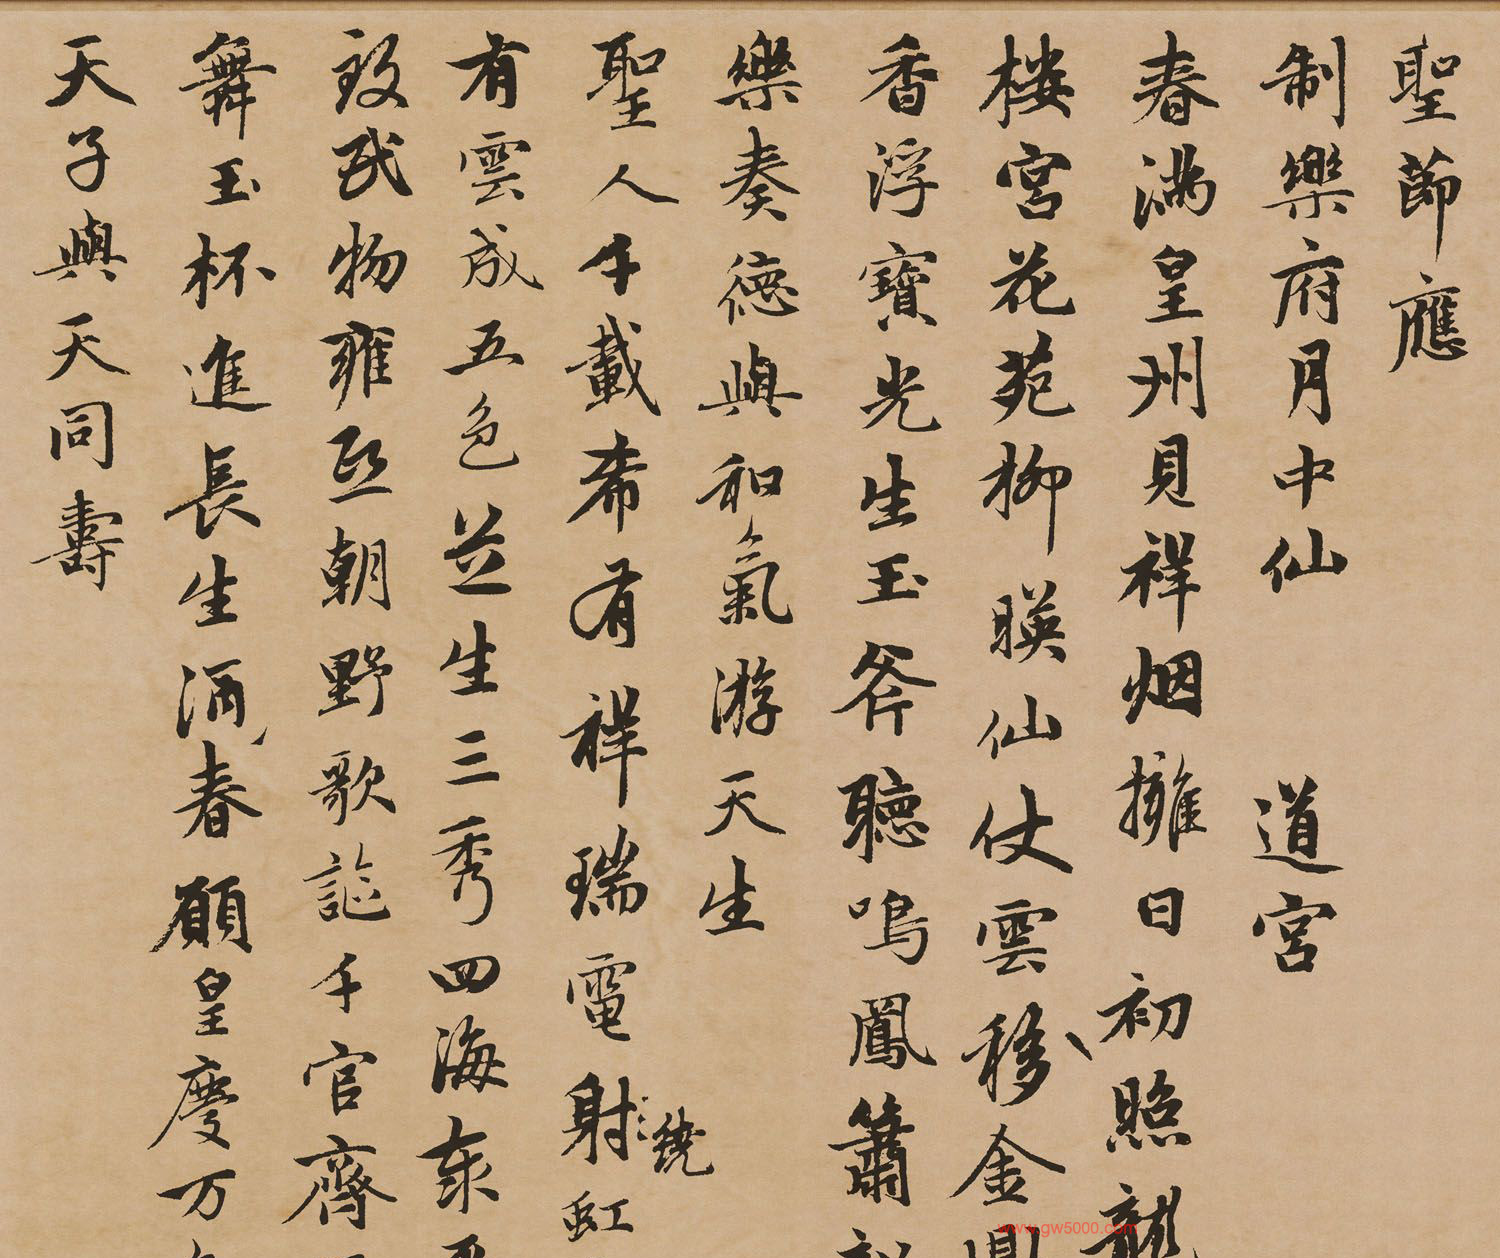 聖節應
制樂府月中仙 道宮
春滿皇州見祥烟擁日初照龍
樓宮花苑柳暎仙仗雲移金鼎
香浮寶光生玉斧聽鳴鳳簫韶
樂奏德與和氣游天生
聖人千載希有祥瑞電射繞虹
有雲成五色芝生三秀四海太平
致民物雍熙朝野歌謳千官齊
舞玉杯進長生酒春願皇慶万年
天子與天同壽
www.gw5000.com